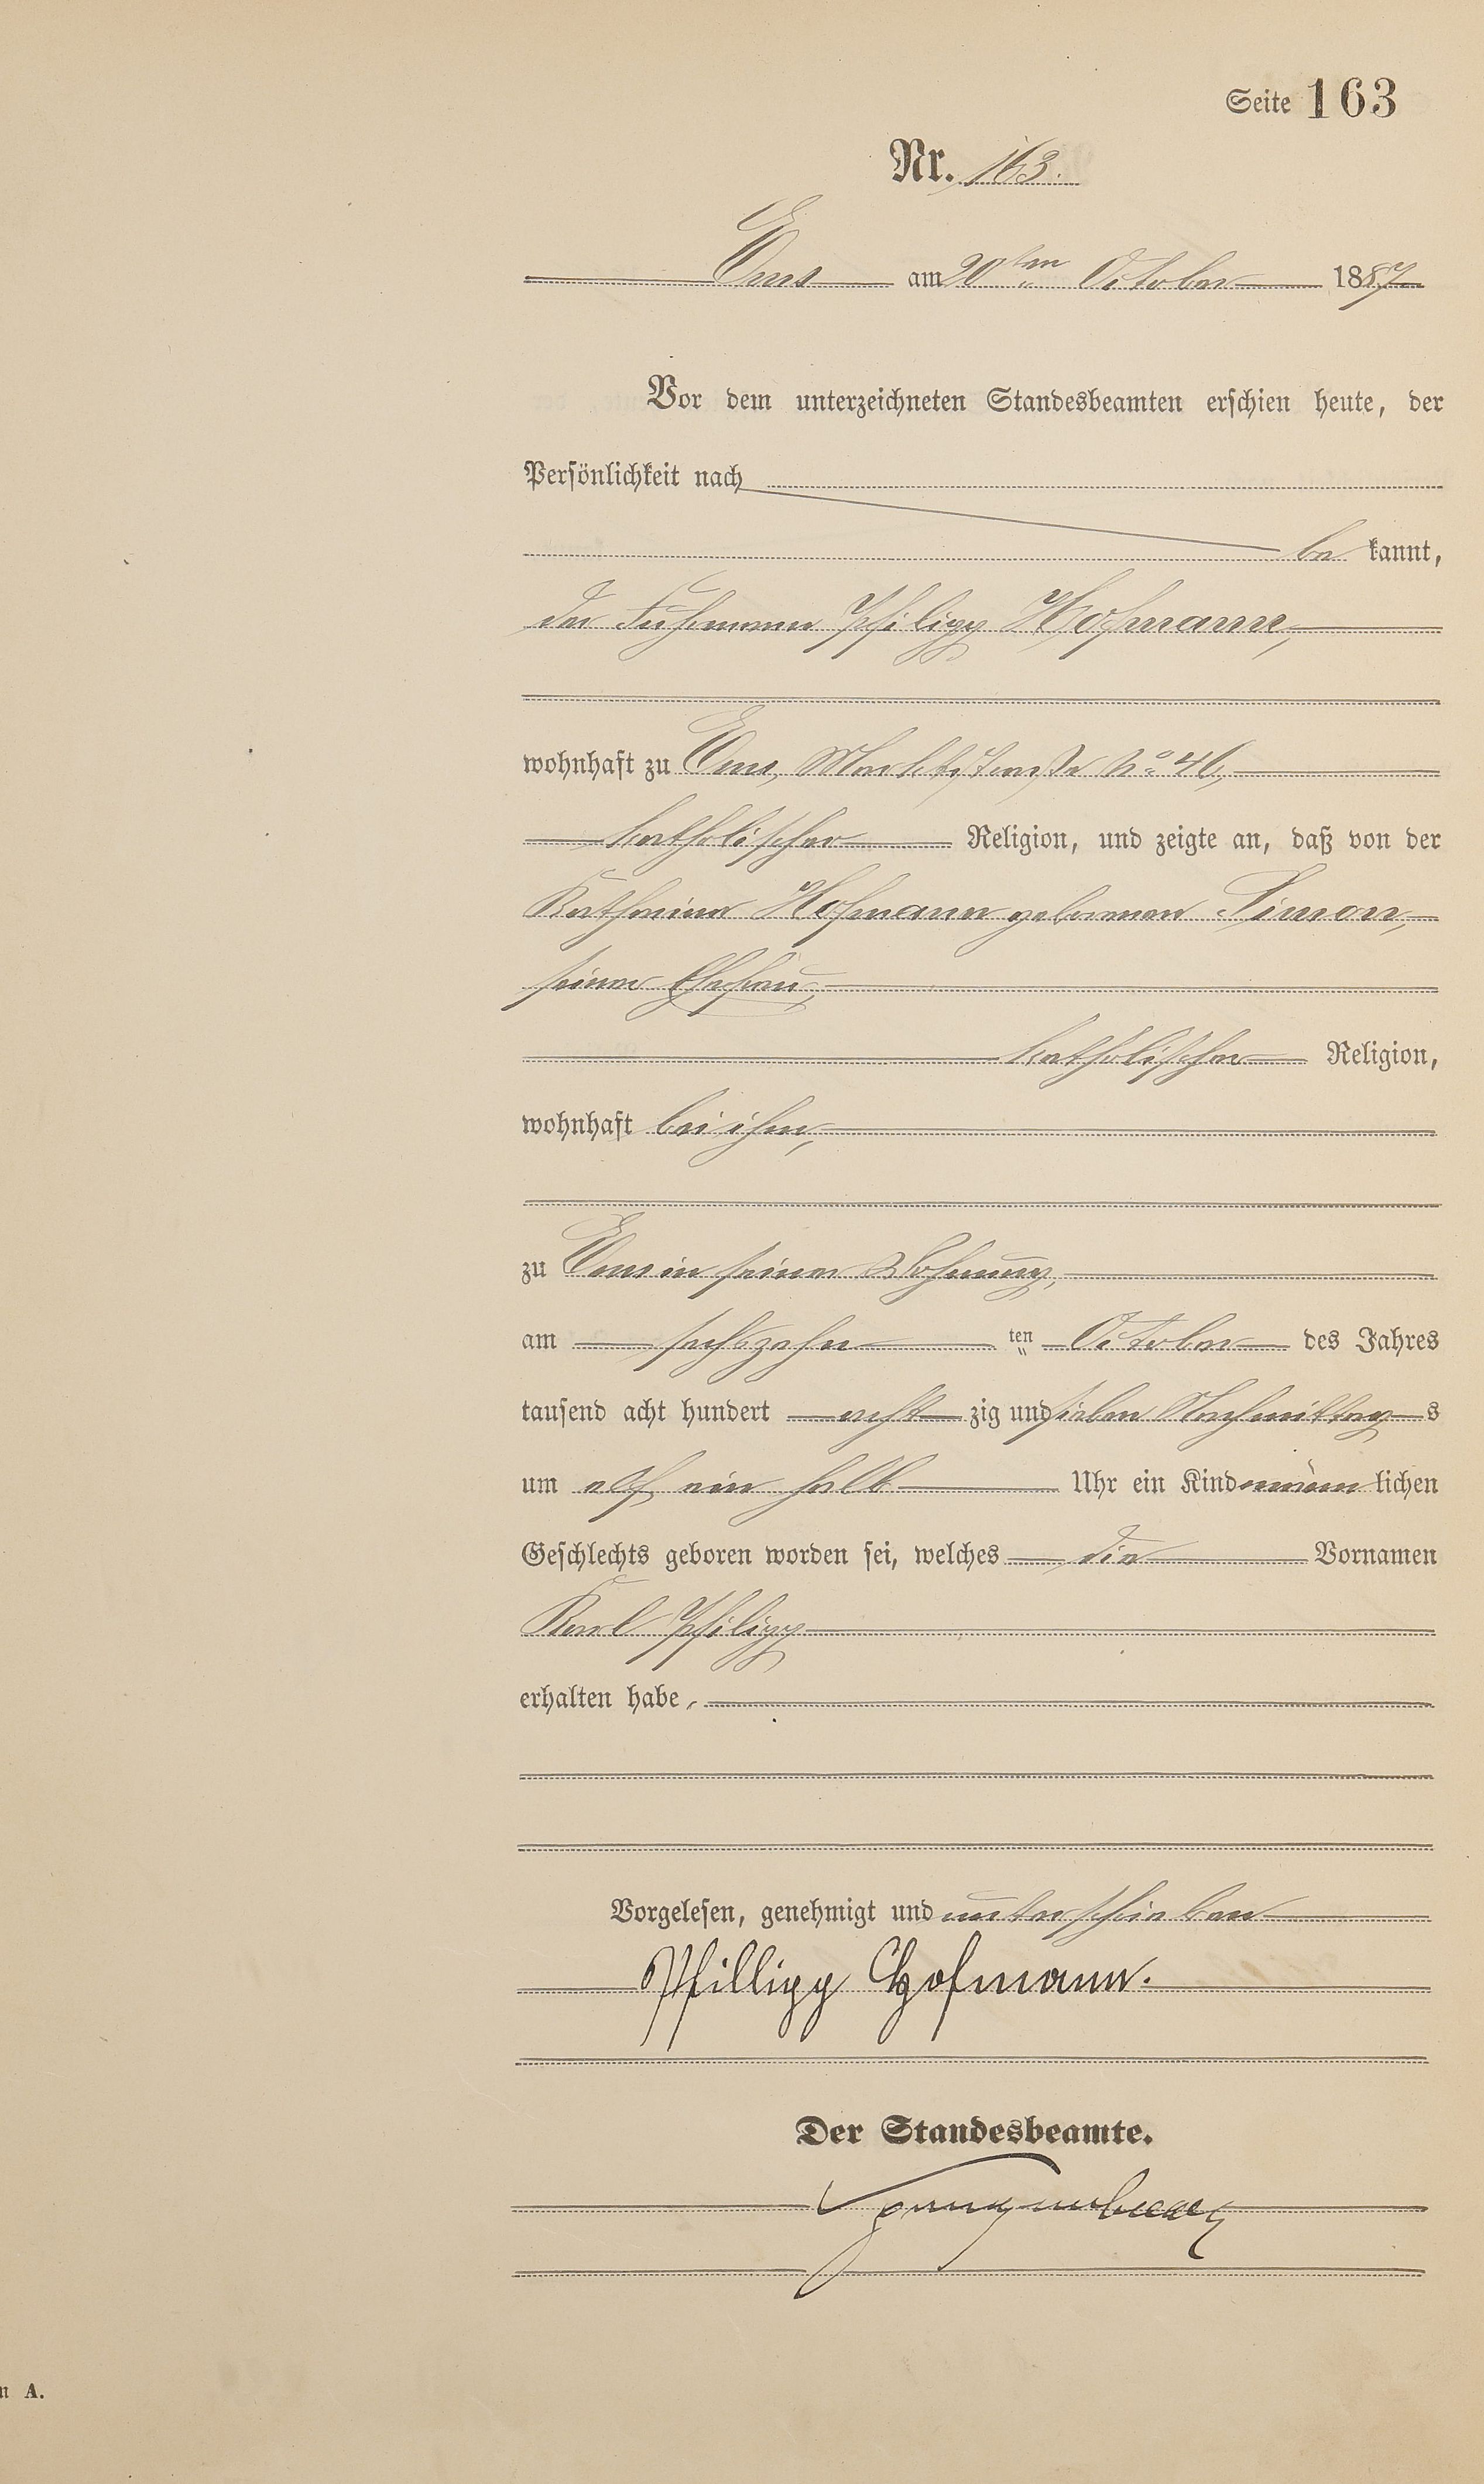 Seite 163
Nr. 163.
Ems am 20ten October 1887
Vor dem unterzeichneten Standesbeamten erschien heute, der
Persönlichkeit nach
be kannt,
der Fuhrmann Philipp Hofmann,
wohnhaft zu Ems, Marktstraße No 46,
katholischer Religion, und zeigte an, daß von der
Katharina Hofmann geborenen Simon,
seiner Ehefrau,
katholischer Religion,
wohnhaft bei ihm,
zu Ems in seiner Wohnung,
am sechszehn ten October des Jahres
tausend acht hundert acht zig und sieben Nachmittag s
um elf ein halb Uhr ein Kind männ lichen
Geschlechts geboren worden sei, welches die Vornamen
Karl Philipp
erhalten habe.
Vorgelesen, genehmigt und unterschrieben
Phillipp Hofmann.
Der Standesbeamte.
A.